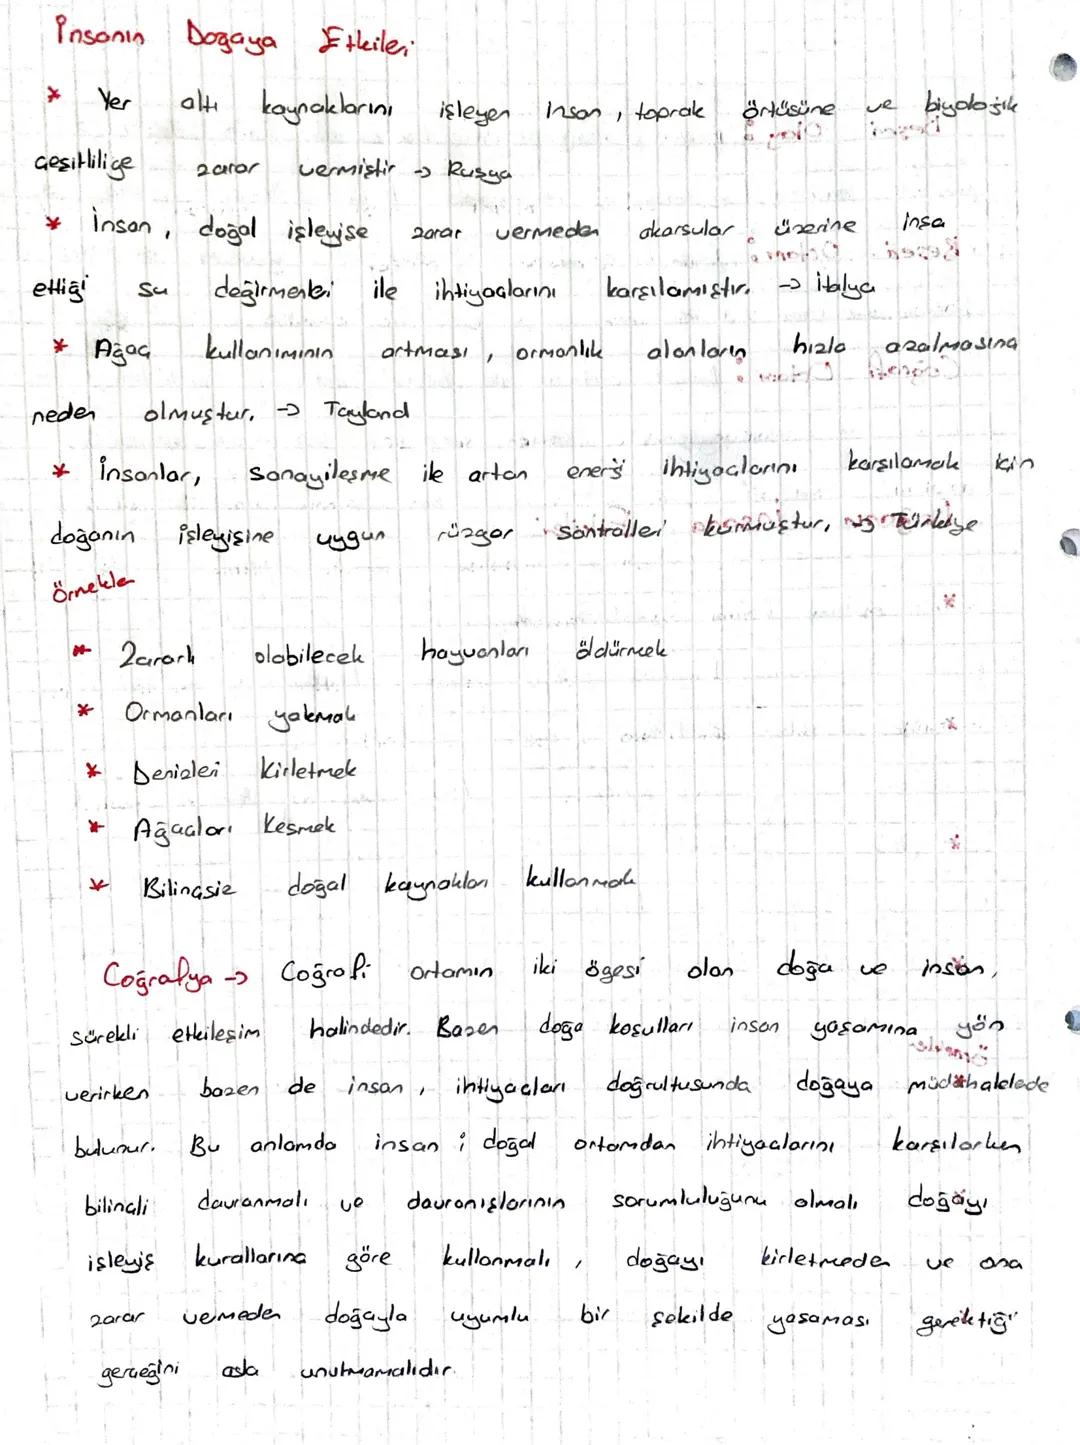 İnsanın Doğaya Etkileri
* Yer altı kaynaklarını işleyen insan, toprak örtüsüne ve biyolojik
çeşitliliğe zarar vermiştir → Rusya
* İnsan, doğal işleyişe zarar vermeden akarsular üzerine inşa
ettiği su değirmenleri ile ihtiyaçlarını karşılamıştır. → İtalya
* Ağaç kullanımının artması, ormanlık alanların hızla azalmasına
neden olmuştur. → Tayland
* İnsanlar, sanayileşme ile artan enerji ihtiyaçlarını karşılamak için
doğanın işleyişine uygun rüzgar santralleri kurmuştur. → Türkiye
Örnekler
* Zararlı olabilecek hayvanları öldürmek
* Ormanları yakmak
* Denizleri kirletmek
* Ağaçları kesmek
* Bilinçsiz doğal kaynakları kullanmak
Coğrafya → Coğrafi ortamın iki ögesi olan doğa ve insan,
sürekli etkileşim halindedir. Bazen doğa koşulları insan yaşamına yön
verirken bazen de insan, ihtiyaçları doğrultusunda doğaya müdahalede
bulunur. Bu anlamda insan; doğal ortamdan ihtiyaçlarını karşılarken
bilinçli davranmalı ve davranışlarının sorumluluğunu olmalı doğayı
işleyiş kurallarına göre kullanmalı, doğayı kirletmeden ve ona
zarar vermeden doğayla uyumlu bir şekilde yaşaması gerektiği
gerçeğini asla unutmamalıdır.